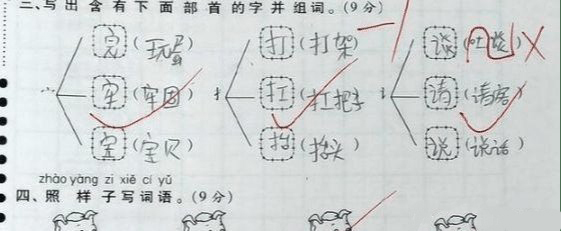 三、写出含有下面部首的字并组词。(9分)
完(玩蛋) 打(打架) 谈(吐谈)
宀 牢(牢固) 扌 扛(扛把子 讠 请(请客)
宝(宝贝) 抬(抬头) 说(说话)
zhào yàng zi xiě cí yǔ
四、照样子写词语。(9分)